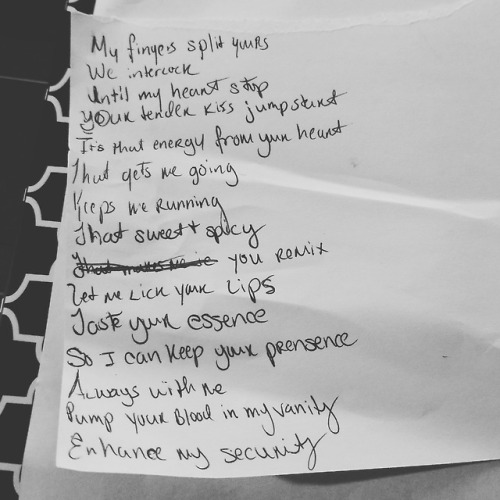 My fingers split yours
We interlock
Until my heart stop
Your tender kiss jumpstart
It's that energy from your heart
That gets me going
Keeps me running
That sweet + spicy
That makes me ie you remix
Let me lick your lips
Taste your essence
So I can keep your prensence
Always with me
Pump your blood in my vanity
Enhance my security